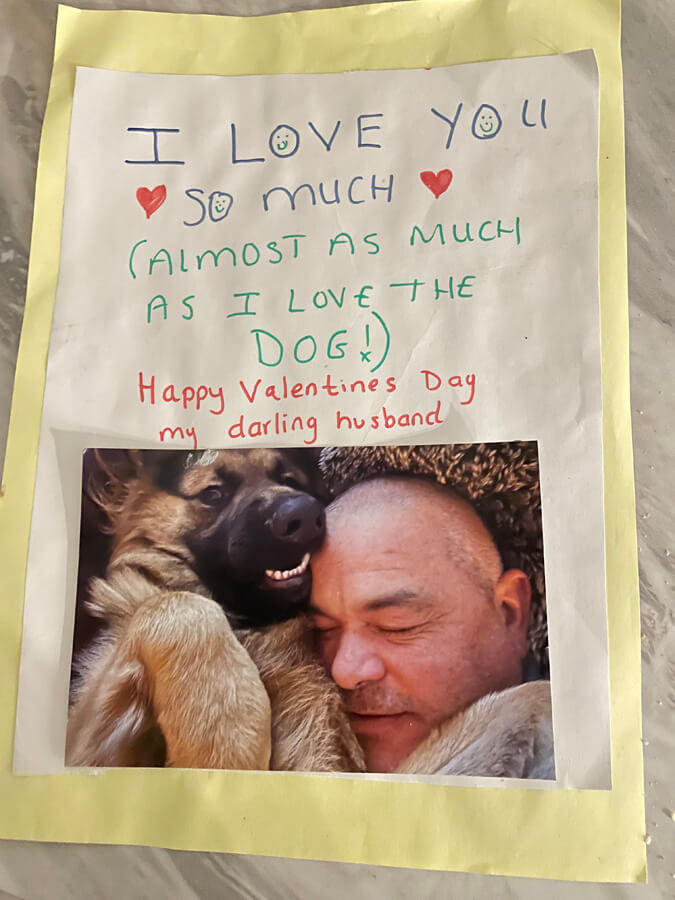 I LOVE YOU
SO MUCH
(ALMOST AS MUCH
AS I LOVE THE
DOG!)
Happy Valentines Day
my darling husband